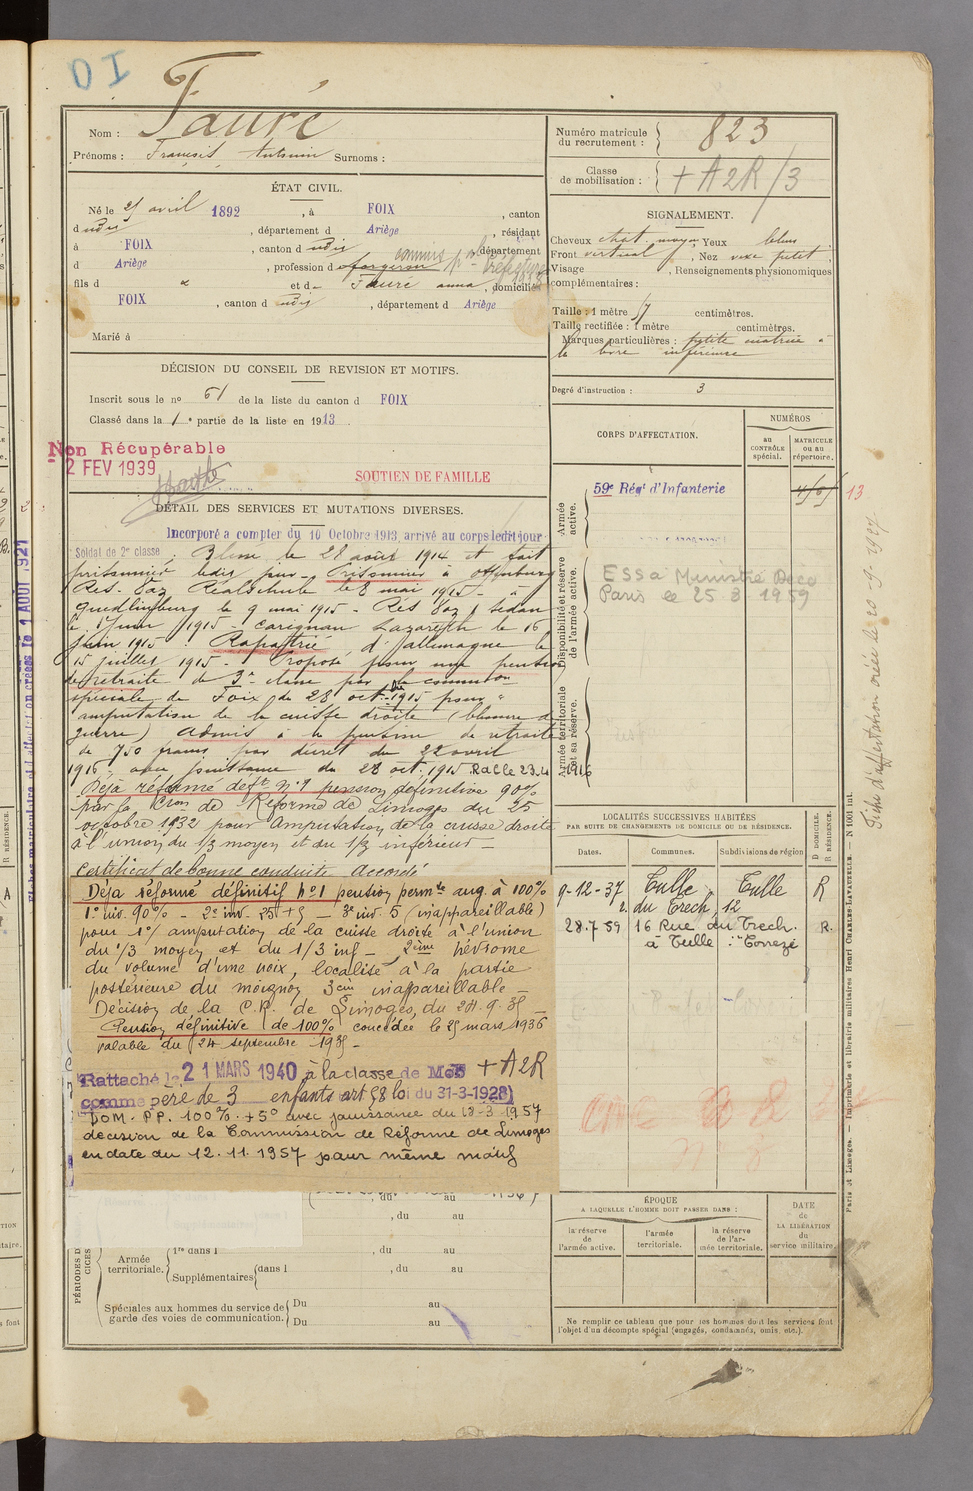 OI
Nom : Fauré
Prénoms : François, Antonin Surnoms :
Numéro matricule du recrutement : 823
Classe de mobilisation : + A2R/3
ÉTAT CIVIL.
Né le 25 avril 1892, à FOIX, canton
dudit, département d Ariège, résidant
à FOIX, canton dudit, département
d Ariège, profession d forgeron commis pl. Préfecture
fils d " et d Fauré anna, domiciliés
FOIX, canton dudit, département d Ariège
Marié à
SIGNALEMENT.
Cheveux chat. moyen Yeux bleus
Front vertical, Nez vexe petit
Visage, Renseignements physionomiques
complémentaires :
Taille : 1 mètre 57 centimètres.
Taille rectifiée : 1 mètre centimètres.
Marques particulières : petite cicatrice à
la lèvre inférieure
Degré d'instruction : 3
DÉCISION DU CONSEIL DE REVISION ET MOTIFS.
Inscrit sous le nº 51 de la liste du canton d FOIX
Classé dans la 1e partie de la liste en 1913.
Non Récupérable
2 FEV 1939
SOUTIEN DE FAMILLE
CORPS D'AFFECTATION.
NUMÉROS
au CONTRÔLE spécial.
MATRICULE ou au répertoire.
Armée active.
59e Régt d'Infanterie
13
Disponibilité et réserve de l'armée active.
ESSa Ministre Deco
Paris le 25 8 1959
Armée territoriale et sa réserve.
DÉTAIL DES SERVICES ET MUTATIONS DIVERSES.
Incorporé a compter du 10 Octobre 1913, arrivé au corps ledit jour
Soldat de 2e classe. Blessé le 28 août 1914 et fait
prisonnier ledit jour. Prisonnier à Offenburg
Res. Laz Realschule le 8 mai 1915 - à
Quedlinburg le 9 mai 1915 - Res Laz, Sedan
le 1er juin 1915 - Carignan Lazareth le 16
juin 1915. Rapatrié d'Allemagne le
15 juillet 1915 - Proposé pour une pension
de retraite de 3e classe par la commission
spéciale de Foix du 28 oct. 1915 pour "
amputation de la cuisse droite (blessure de
guerre) Admis à la pension de retraite
de 750 francs par décret du 22 avril
1916, avec jouissance du 28 oct. 1915. RaCle 23.4 1916
Déjà réformé déft Nº 1 pension définitive 90%
par la Cion de Réforme de Limoges du 25
octobre 1932 pour amputation de la cuisse droite
à l'union du 1/3 moyen et du 1/3 inférieur -
Certificat de bonne conduite accordé
Déjà réformé définitif nº1 pension permte aug. à 100%
1º inv. 90% - 2e inv. 25 + 5 - 3e inv. 5 (inappareillable)
pour 1º/ amputation de la cuisse droite à l'union
du 1/3 moyen et du 1/3 inf - 2ème névrome
du volume d'une noix, localisé à la partie
postérieure du moignon 3em inappareillable -
Décision de la C.R. de Limoges, du 24.9.35 -
Pension définitive de 100% concédée le 25 mars 1936
valable du 24 septembre 1935 -
Rattaché le 21 MARS 1940 à la classe de Mob + A2R
comme père de 3 enfants art 58 loi du 31-3-1928)
DOM. PP. 100% + 5º avec jouissance du 13-3-1957
decision de la Commission de Réforme de Limoges
en date du 12.11.1957 pour même motif
LOCALITÉS SUCCESSIVES HABITÉES
PAR SUITE DE CHANGEMENTS DE DOMICILE OU DE RÉSIDENCE.
Dates. Communes. Subdivisions de région
D DOMICILE. R RÉSIDENCE.
9-12-37 Tulle Tulle R
r. du Trech, 12
28.7.59 16 Rue du Trech. R.
à Tulle : Corrèze
ÉPOQUE
A LAQUELLE L'HOMME DOIT PASSER DANS :
DATE de LA LIBÉRATION du service militaire
la réserve de l'armée active.
l'armée territoriale.
la réserve de l'armée territoriale.
, du au
, du au
PÉRIODES D
CICES
Armée territoriale.
1re dans l , du au
Supplémentaires dans l , du au
Spéciales aux hommes du service de garde des voies de communication.
Du au
Du au
Ne remplir ce tableau que pour les hommes dont les services font
l'objet d'un décompte spécial (engagés, condamnés, omis, etc.).
Fiche d'affectation créée le 20-9-1927
Paris et Limoges. — Imprimerie et librairie militaires Henri CHARLES-LAVAUZELLE. — N 1001 int.
Fiches matriculaire et d'affectation créées le 1 AOUT 1921
R RÉSIDENCE.